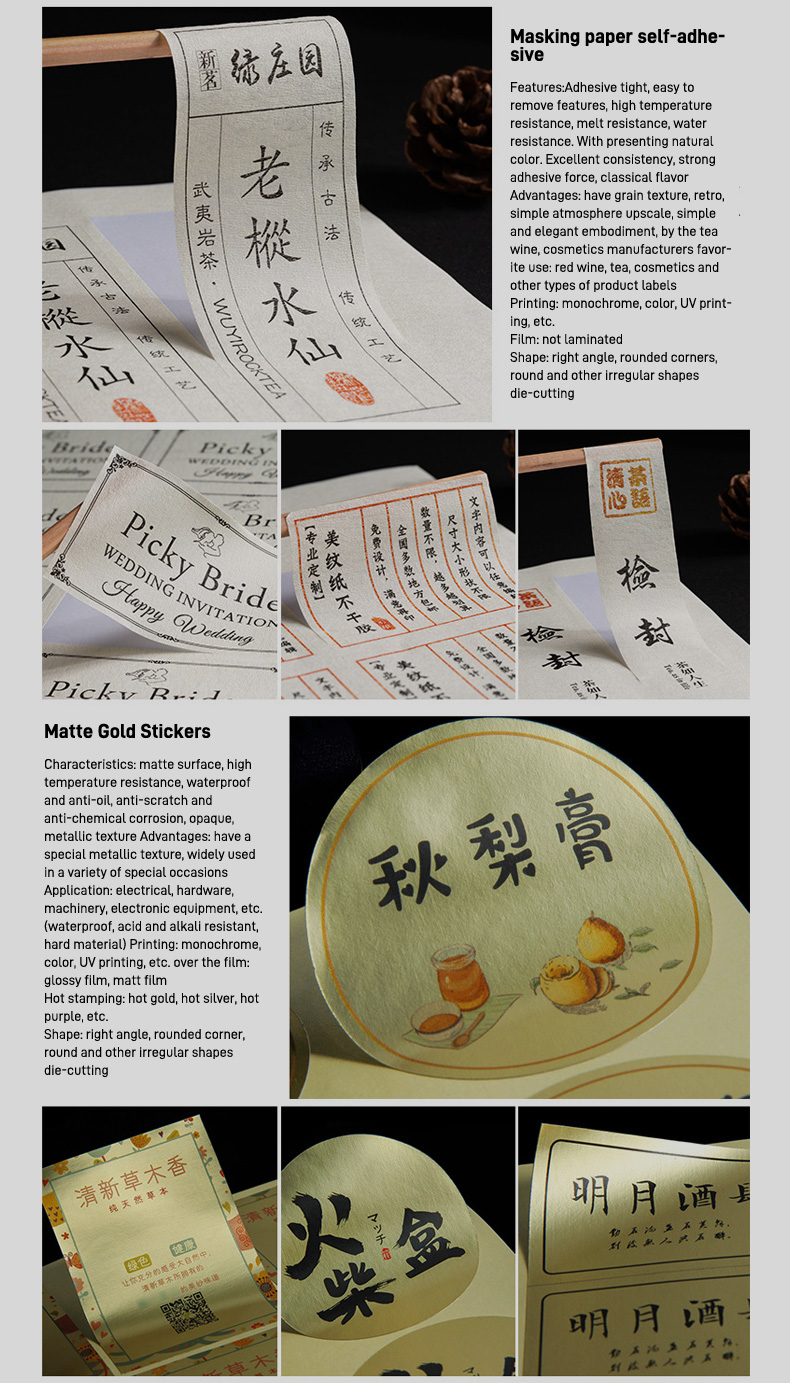 新茗
绿庄园
传承古法
老樅水仙
武夷岩茶·WUYIROCKTEA
传统工艺
园
传承古法
樅水仙
传统工艺
Masking paper self-adhe-
sive
Features:Adhesive tight, easy to
remove features, high temperature
resistance, melt resistance, water
resistance. With presenting natural
color. Excellent consistency, strong
adhesive force, classical flavor
Advantages: have grain texture, retro,
simple atmosphere upscale, simple
and elegant embodiment, by the tea
wine, cosmetics manufacturers favor-
ite use: red wine, tea, cosmetics and
other types of product labels
Printing: monochrome, color, UV print-
ing, etc.
Film: not laminated
Shape: right angle, rounded corners,
round and other irregular shapes
die-cutting
Bride
Wedding
Picky
WEDDING IN
Happy W
Picky Bride
WEDDING INVITATION
Happy Wedding
Picky Brid
【专业定制】
美纹纸不干胶
免费设计，满意再印
全国多数地方包邮
数量不限，越多越划算
尺寸大小形状不限
文字内容可以任意编
美纹纸不
清心茶語
檢封
茶如人生
檢封
茶如人生
Matte Gold Stickers
Characteristics: matte surface, high
temperature resistance, waterproof
and anti-oil, anti-scratch and
anti-chemical corrosion, opaque,
metallic texture Advantages: have a
special metallic texture, widely used
in a variety of special occasions
Application: electrical, hardware,
machinery, electronic equipment, etc.
(waterproof, acid and alkali resistant,
hard material) Printing: monochrome,
color, UV printing, etc. over the film:
glossy film, matt film
Hot stamping: hot gold, hot silver, hot
purple, etc.
Shape: right angle, rounded corner,
round and other irregular shapes
die-cutting
秋梨膏
清新草木香
纯天然草本
绿色 健康
让你充分的感受大自然中，
清新草木所拥有的
的美妙味道
火柴盒
マッチ
明月酒
明月酒